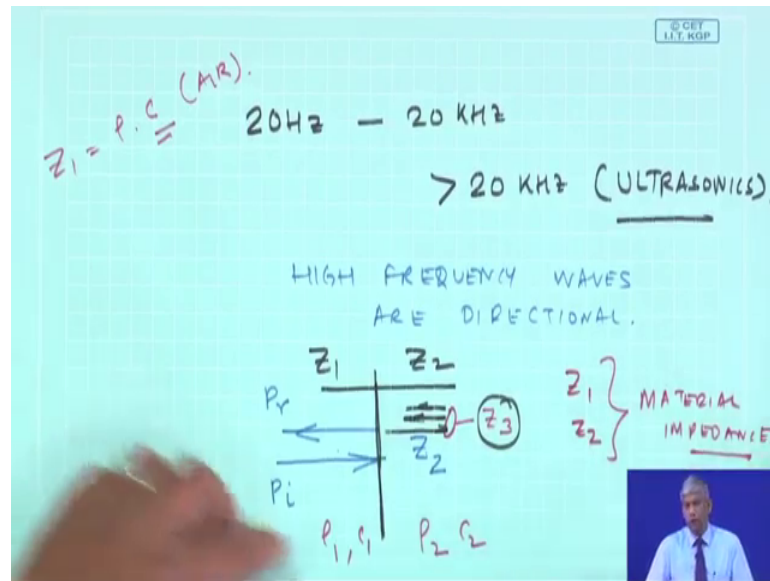 © CET
I.I.T. KGP
Z₁ = ρ.C (AIR).
20HZ — 20 KHZ
> 20 KHZ (ULTRASONICS).
HIGH FREQUENCY WAVES
ARE DIRECTIONAL.
Z₁ Z₂
Pr
Z₃
Z₂
Pi
ρ₁, C₁ ρ₂ C₂
Z₁
Z₂
MATERIAL
IMPEDANCE